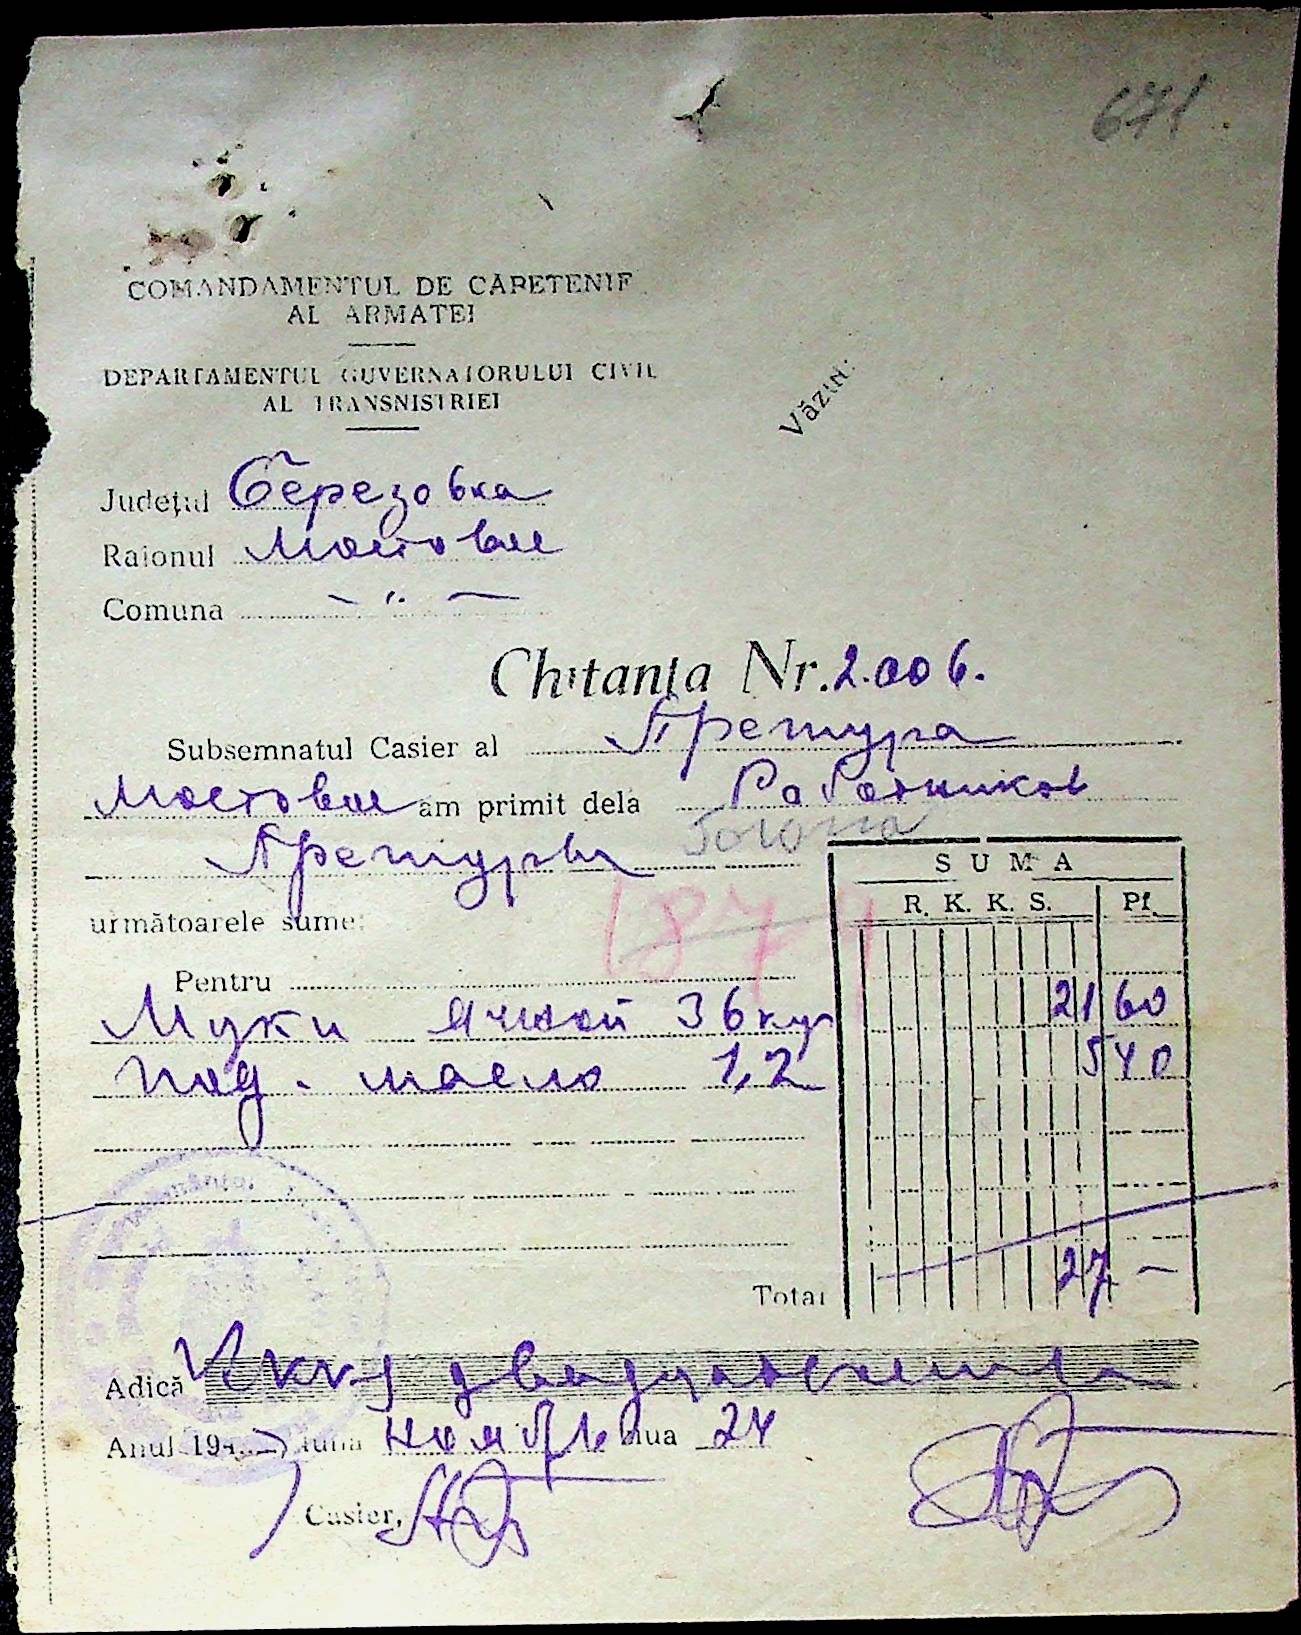 671
COMANDAMENTUL DE CAPETENIE
AL ARMATEI
DEPARTAMENTUL GUVERNATORULUI CIVIL
AL TRANSNISTRIEI
Văzut:
Județul Березовка
Raionul Мостовое
Comuna — ״ —
Chitanța Nr. 2006.
Subsemnatul Casier al Претура
Мостовое am primit dela Работников
Претуры
următoarele sume:
1874
SUMA
R. K. K. S. Pf.
Pentru
Муки ячной 36 кгр 21 60
под. масло 1,2 5 40
Total 27 —
Adică двадцать семь
Anul 194 luna ноябрь ziua 24
Casier,